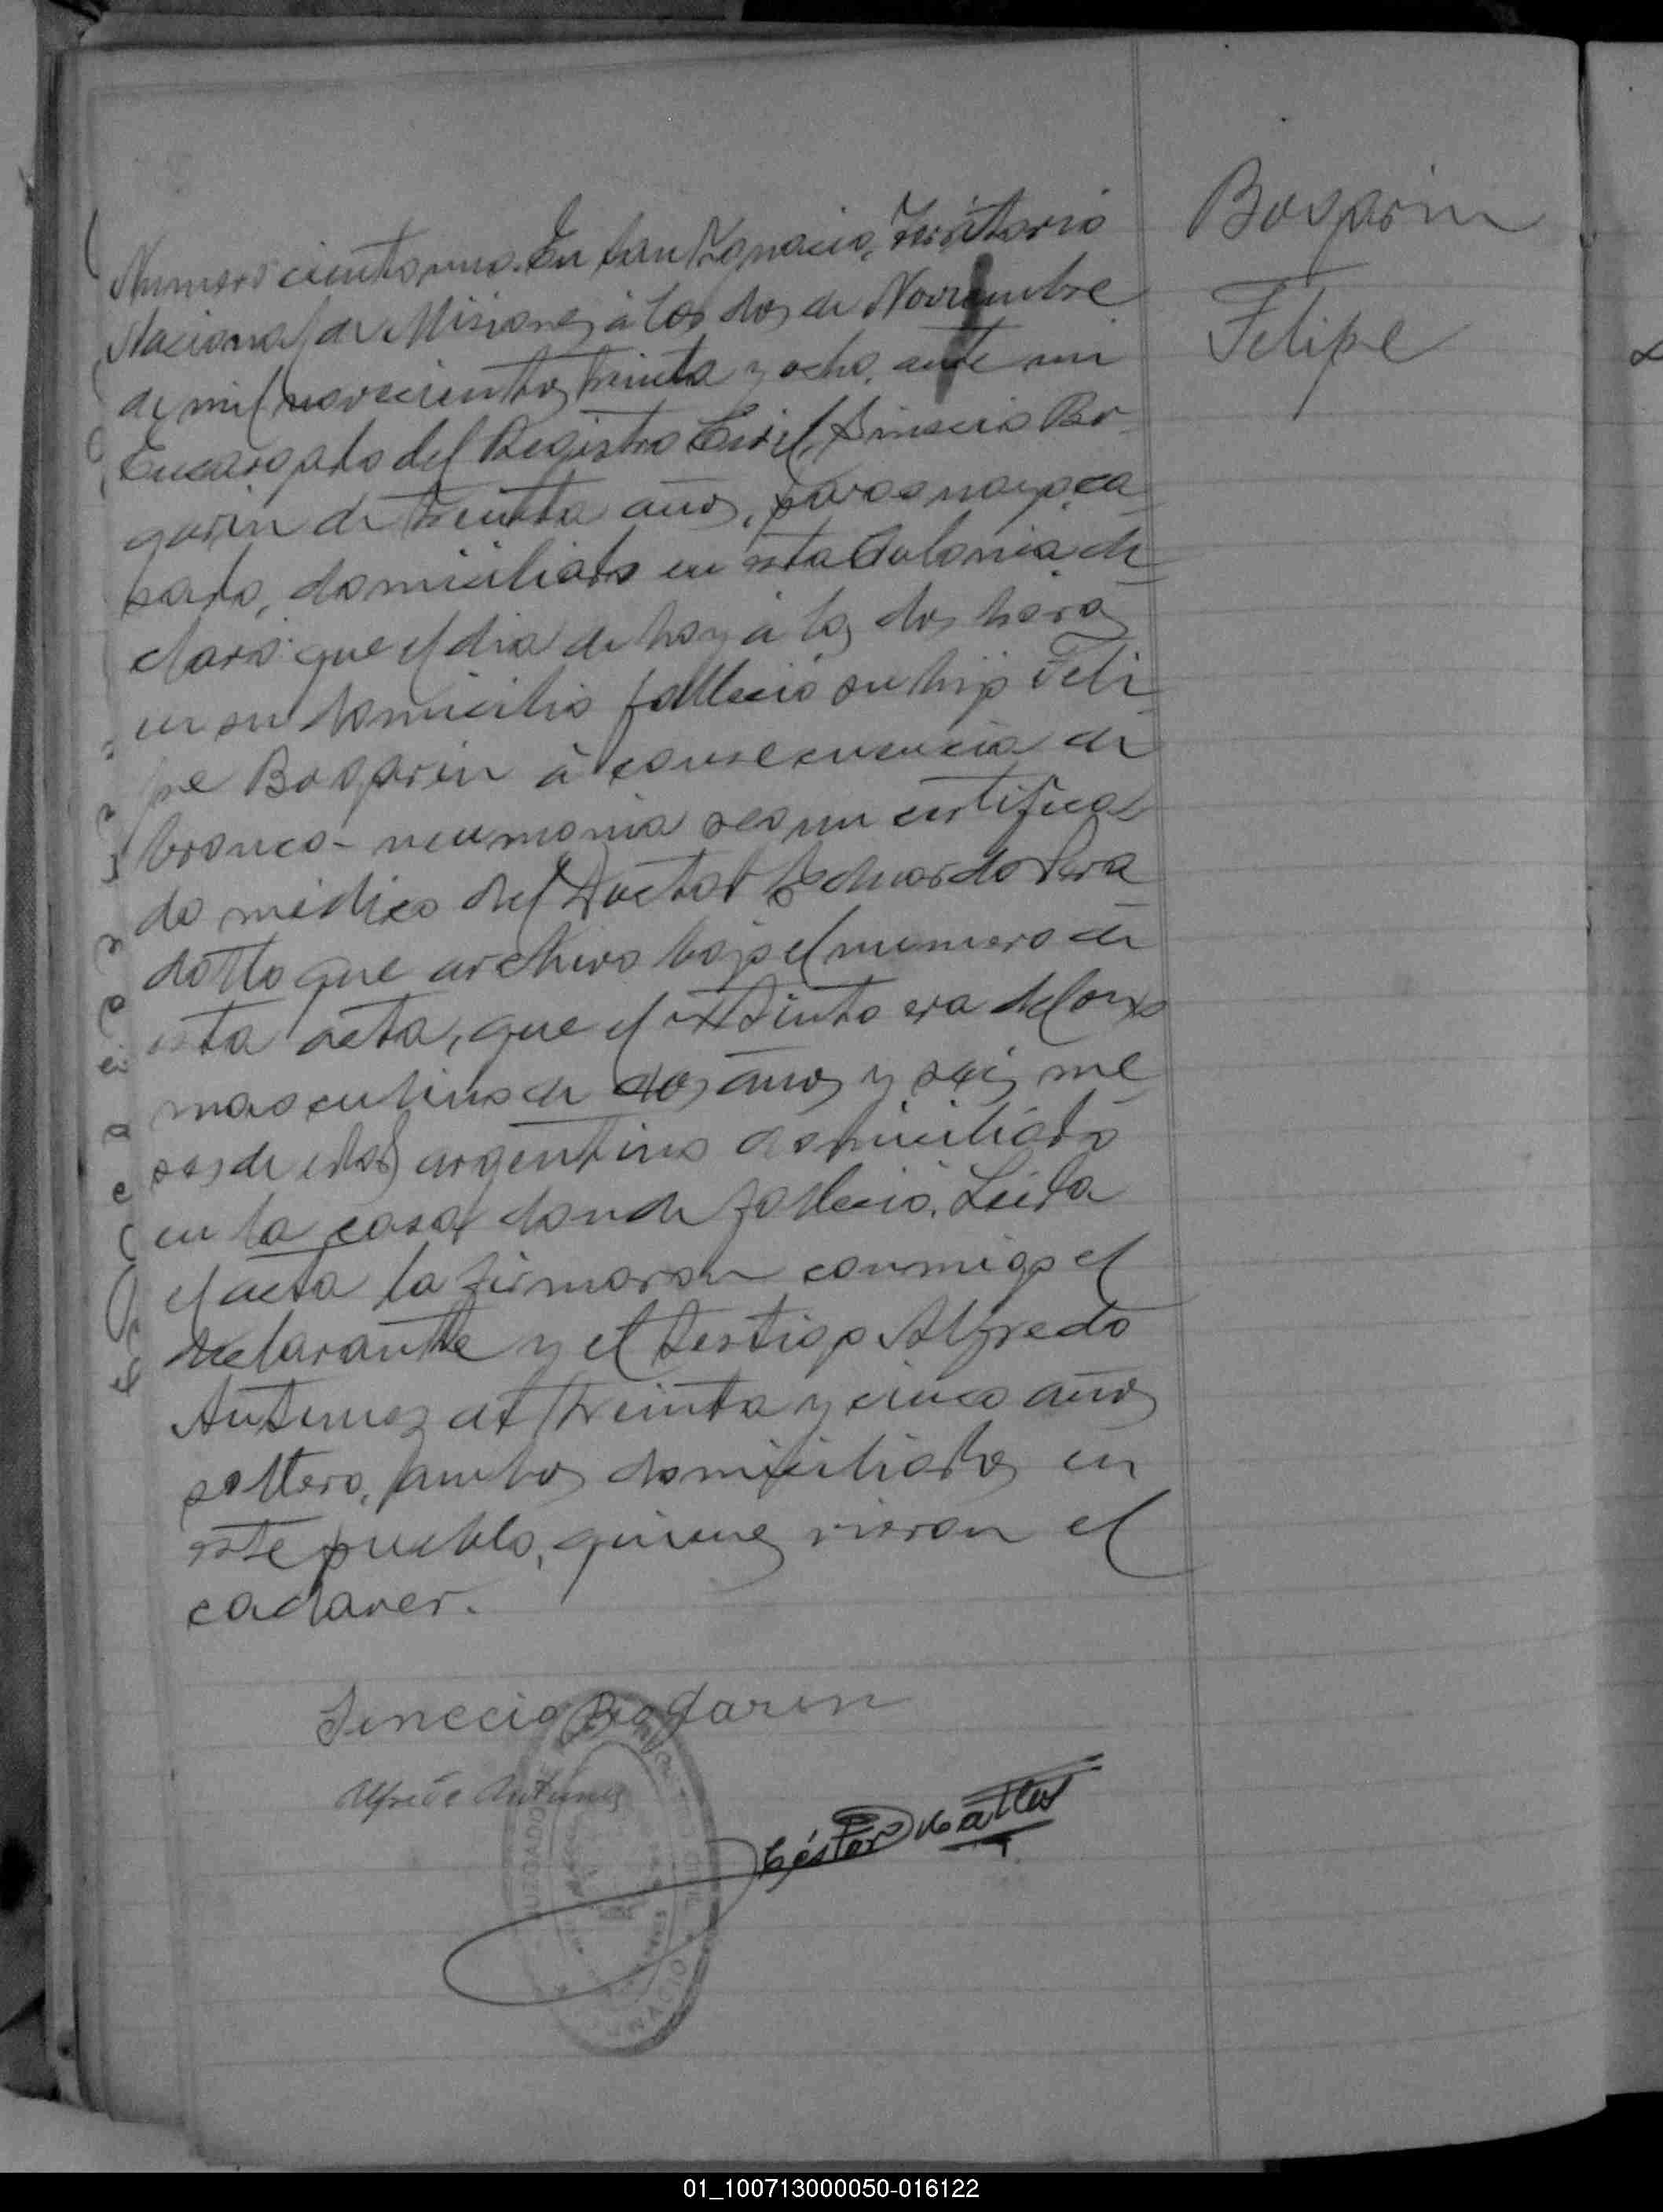 Bogarin
Felipe
Numero ciento uno. En San Ignacio, Territorio
Nacional de Misiones, á los dos de Noviembre
de mil novecientos treinta y ocho, ante mi
Encargado del Registro Civil, Sinecio Bo-
garin de treinta años, paraguayo, ca-
sado, domiciliado en esta Colonia, de-
claró: que el dia de hoy á las dos horas
en su domicilio falleció su hijo Feli-
pe Bogarin á consecuencia de
bronco-neumonia segun certifica-
do médico del Doctor Eduardo Pera
dotto que archivo bajo el numero de
esta acta, que el extinto era del sexo
masculino de dos años y seis me-
ses de edad argentino domiciliado
en la casa donde falleció. Leida
el acta la firmaron conmigo el
declarante y el testigo Alfredo
Antunez de treinta y cinco años
soltero, ambos domiciliados en
este pueblo, quienes vieron el
cadaver.
Sinecio Bogarin
Alfredo Antunez
JUZGADO DE
CIVIL
IGNACIO
01_100713000050-016122